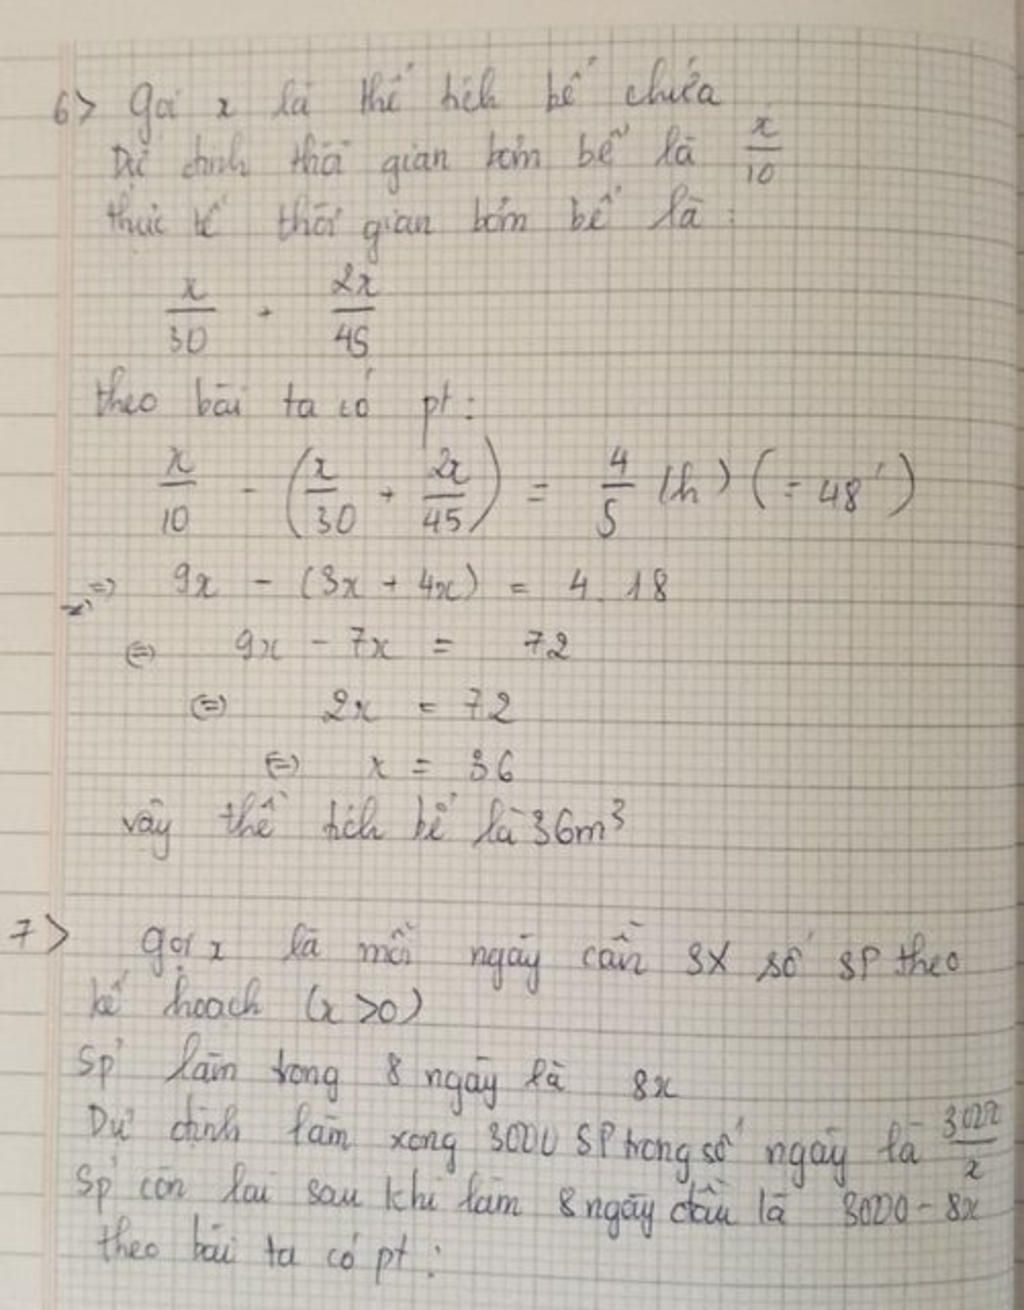 6> Gọi x là thể tích bể chứa
Dự định thời gian bơm bể là x/10
thực tế thời gian bơm bể là :
x/30 + 2x/45
theo bài ta có pt :
x/10 - (x/30 + 2x/45) = 4/5 (h) (= 48')
=> 9x - (3x + 4x) = 4 . 18
<=> 9x - 7x = 72
<=> 2x = 72
<=> x = 36
vậy thể tích bể là 36m³
7> gọi x là mỗi ngày cần SX số SP theo
kế hoạch (x >0)
Sp làm trong 8 ngày là 8x
Dự định làm xong 3000 SP trong số ngày là 3000/x
Sp còn lại sau khi làm 8 ngày đầu là 3000 - 8x
theo bài ta có pt :